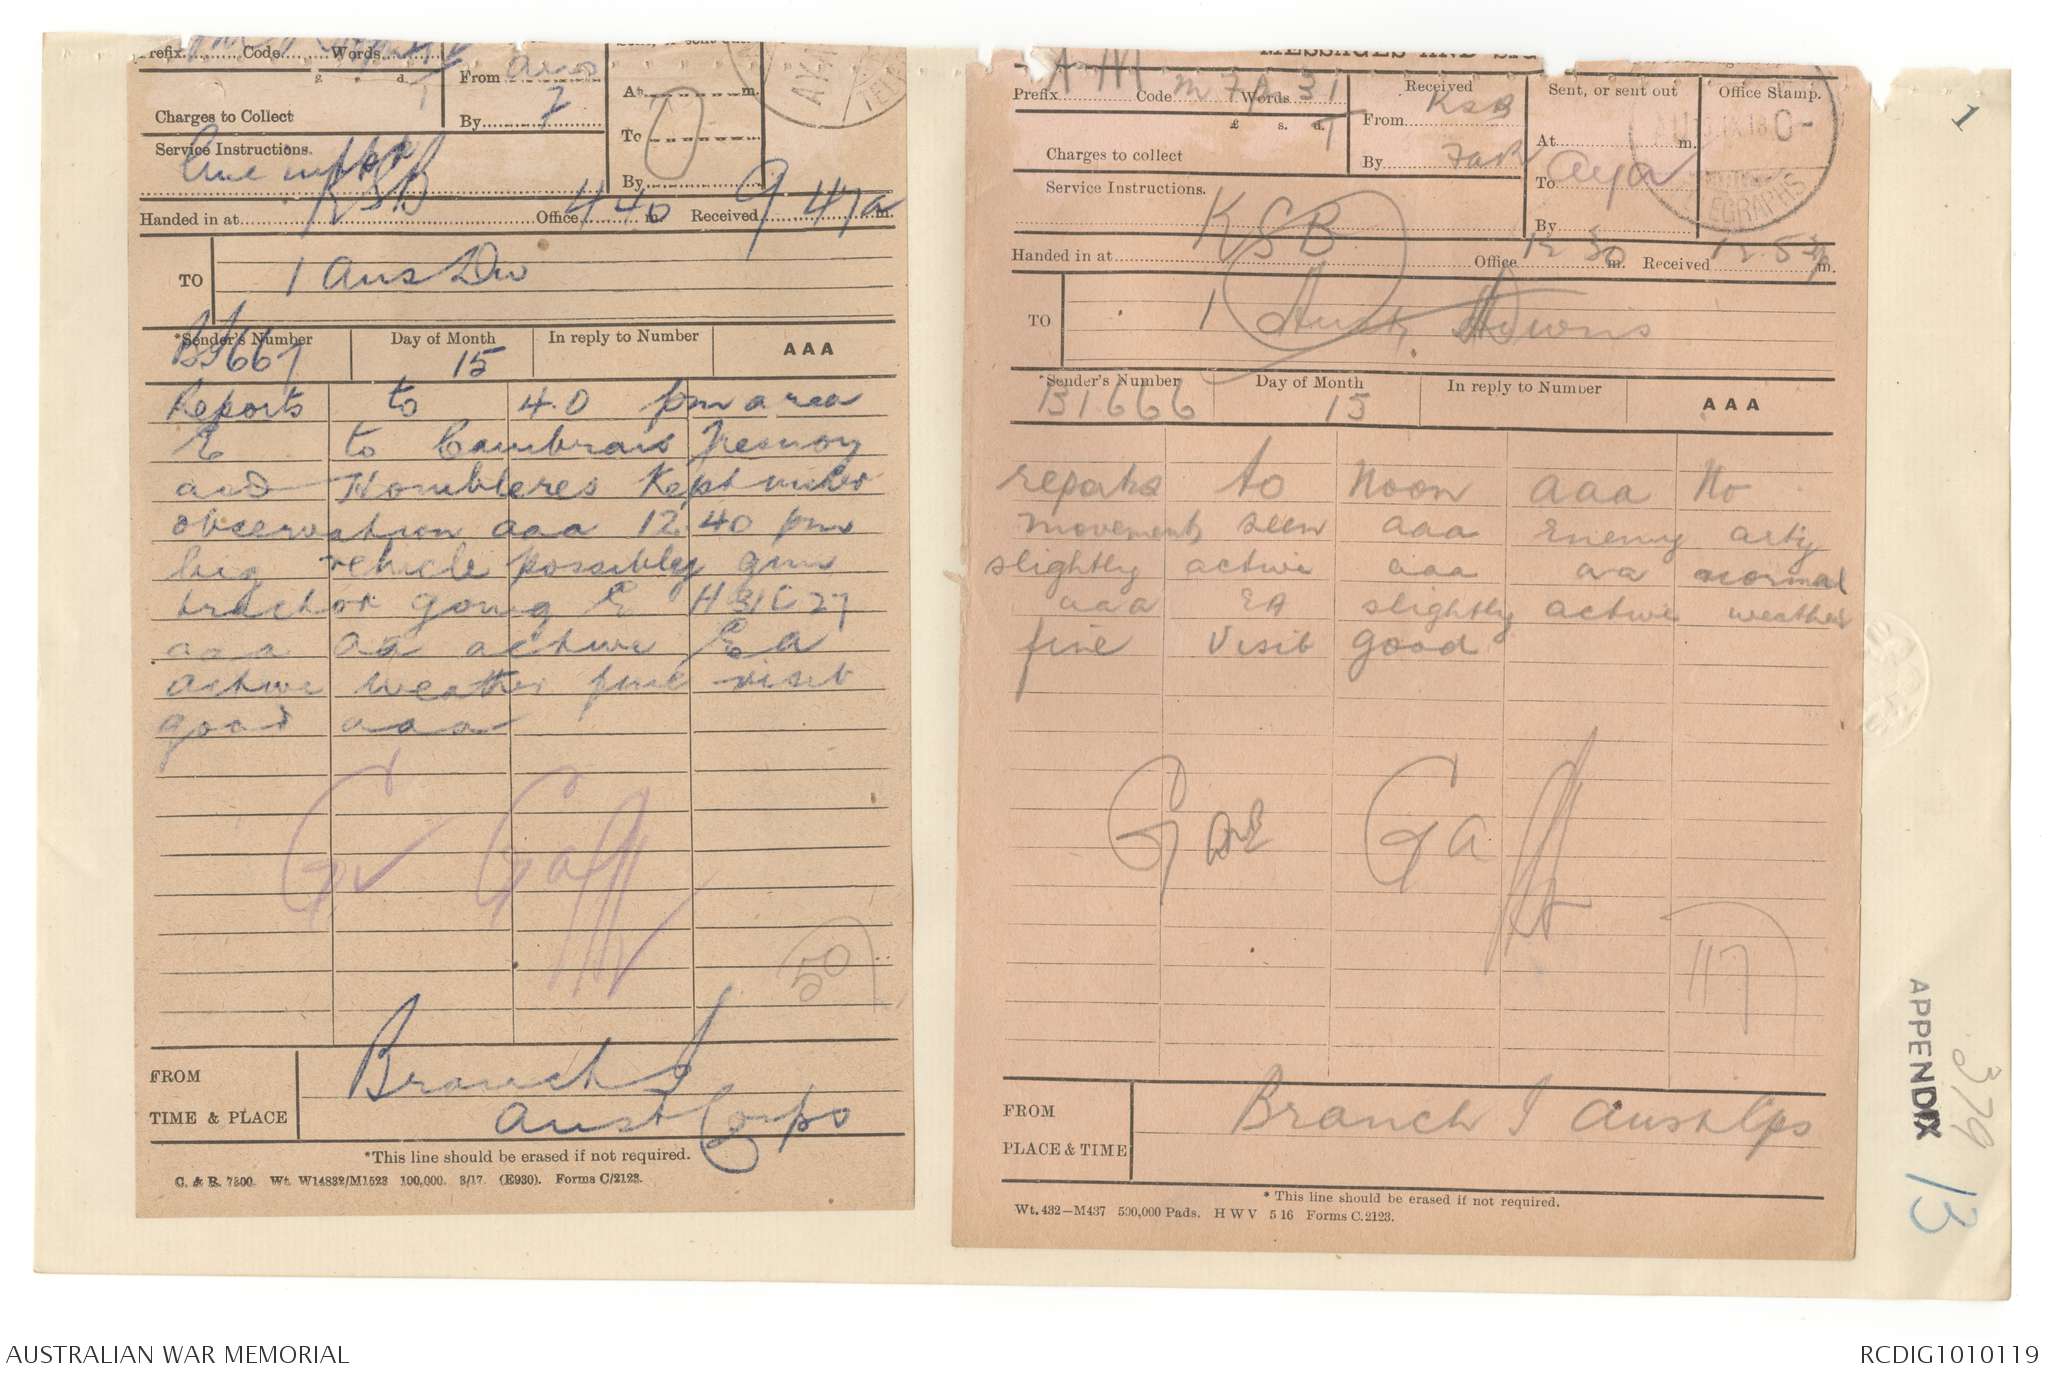 Prefix Code Words
£ s. d.
Charges to Collect
Service Instructions.
From
By 7
At m.
To
By
KSB
Handed in at Office 440 m. Received 9 47a m.
TO 1 Aus Div
*Sender's Number Day of Month In reply to Number AAA
BI667 15
Reports to 4.0 pm area
E to Cambrai Fresnoy
and Hombleres Kept under
observation aaa 12.40 pm
big vehicle possibly gun
tractor going E H31C27
aaa aa active E a
active weather fine visib
good aaa
50
FROM Branch I
TIME & PLACE Aust Corps
*This line should be erased if not required.
C. & R. 7300. Wt. W14832/M1523 100,000. 3/17. (E930). Forms C/2123.
MESSAGES AND
Prefix Code Words 31
£ s. d.
Charges to collect
Service Instructions.
Received
From KSB
By
Sent, or sent out
At m.
To aya
By
Office Stamp.
TELEGRAPHS
KSB
Handed in at Office 12 30 m. Received m.
TO 1 Aust Divns
*Sender's Number Day of Month In reply to Number AAA
BI666 15
reports to Noon aaa No
movement seen aaa Enemy arty
slightly active aaa aa normal
aaa EA slightly active weather
fine Visib good
117
FROM Branch I Aust Cps
PLACE & TIME
* This line should be erased if not required.
Wt. 432—M437 500,000 Pads. H W V 5 16 Forms C.2123.
1
379
APPENDIX 13
AUSTRALIAN WAR MEMORIAL
RCDIG1010119